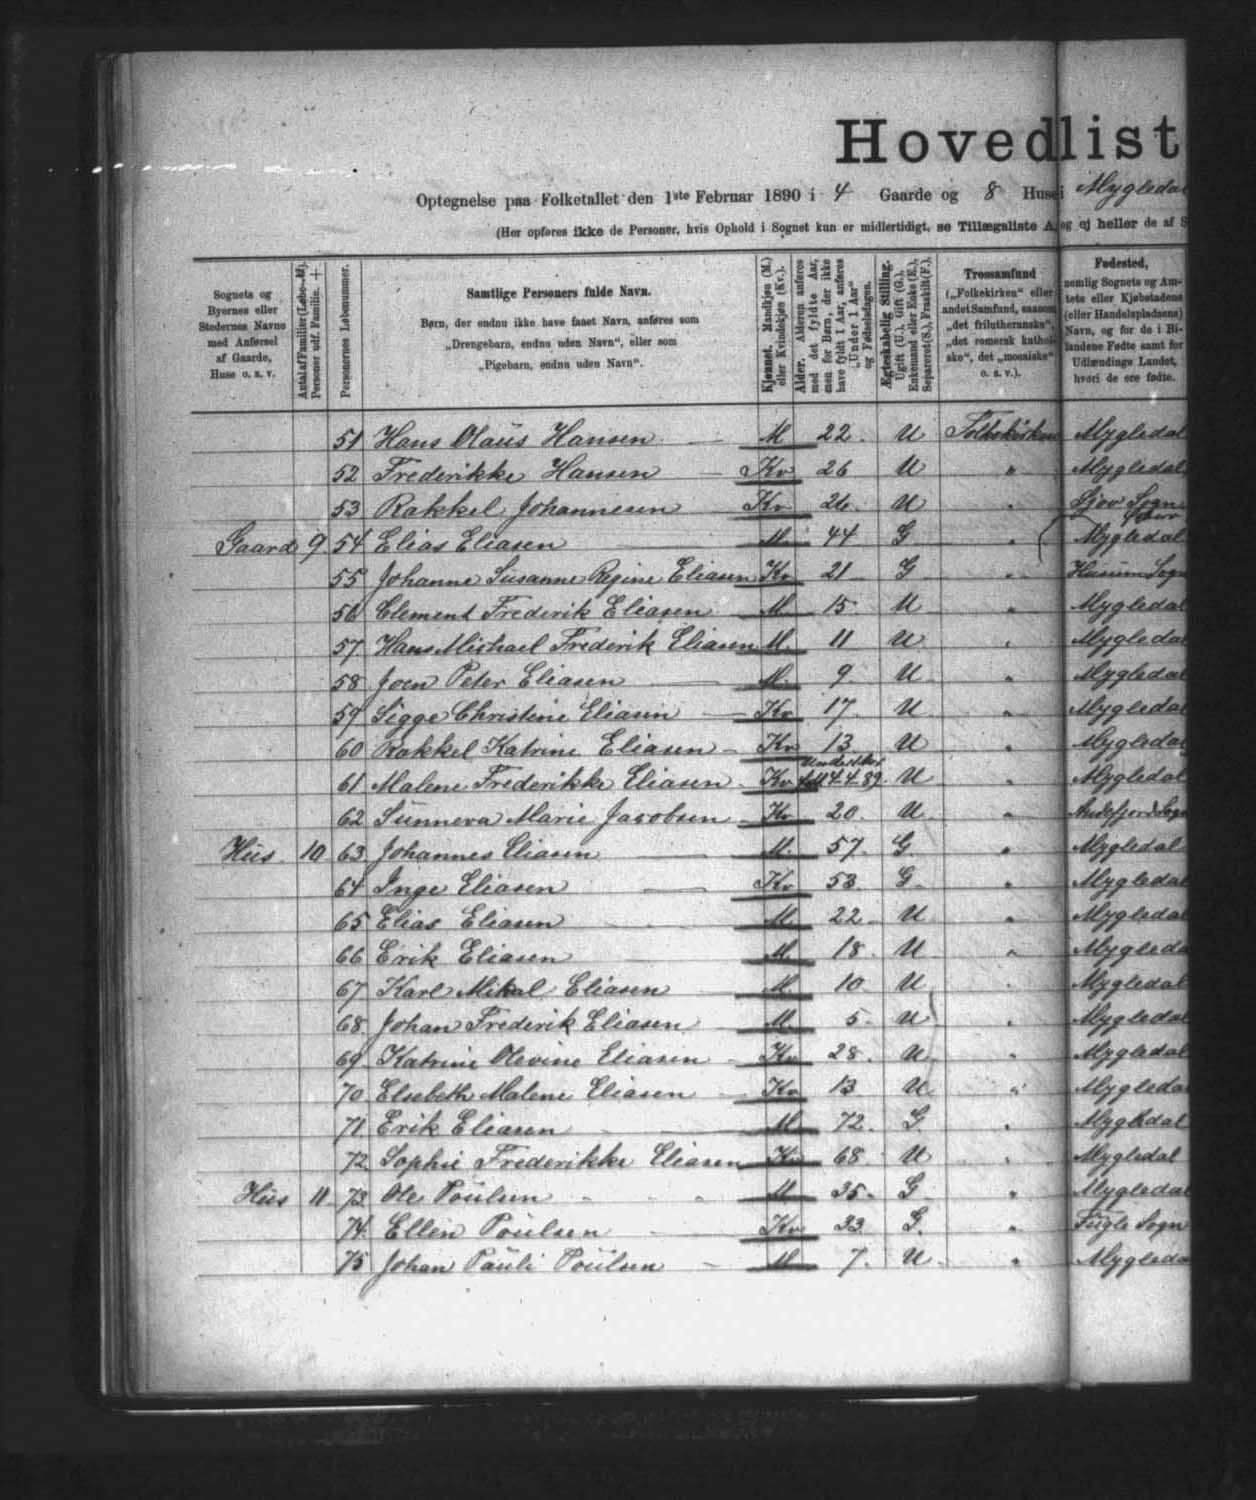 Hovedlist
Optegnelse paa Folketallet den 1ste Februar 1890 i 4 Gaarde og 8 Huse i Mygledal
(Her opføres ikke de Personer, hvis Ophold i Sognet kun er midlertidigt, se Tillægsliste A, og ej heller de af S
Sognets og Byernes eller Stedernes Navne med Anførsel af Gaarde, Huse o. s. v.
Antal af Familier (Løbe-№). Personer udf. Familie. +
Personernes Løbenummer.
Samtlige Personers fulde Navn.
Børn, der endnu ikke have faaet Navn, anføres som
„Drengebarn, endnu uden Navn“, eller som
„Pigebarn, endnu uden Navn“.
Kjønnet. Mandkjøn (M.) eller Kvindekjøn (Kv.).
Alder. Alderen anføres med det fyldte Aar, men for Børn, der ikke have fyldt 1 Aar, anføres „Under 1 Aar“ og Fødselsdagen.
Ægteskabelig Stilling. Ugift (U.), Gift (G.), Enkemand eller Enke (E.), Separeret (S.), Fraskilt (F.).
Trossamfund („Folkekirken“ eller andet Samfund, saasom „det frilutheranske“, „det romersk katholske“, det „mosaiske“ o. s. v.).
Fødested, nemlig Sognets og Amtets eller Kjøbstadens (eller Handelspladsens) Navn, og for de i Bilandene Fødte samt for Udlændinge Landet, hvori de ere fødte.
51 Hans Olaüs Hansen M 22 U Folkekirken Mygledal
52 Frederikke Hansen Kv 26 U " Mygledal
53 Rakkel Johannesen Kv 26 U " Sjov Sogn
Gaard 9 54 Elias Eliasen M 44 G " Mygledal
55 Johanne Susanne Regine Eliasen Kv 21 G " Husum Sogn
56 Clement Frederik Eliasen M 15 U " Mygledal
57 Hans Michael Frederik Eliasen M. 11 U " Mygledal
58 Joen Peter Eliasen M. 9 U " Mygledal
59 Sigge Christine Eliasen Kv 17 U " Mygledal
60 Rakkel Katrine Eliasen Kv 13 U " Mygledal
61 Malene Frederikke Eliasen Kv 4.4.89. U " Mygledal
62 Sünneva Marie Jacobsen Kv 20. U " Andefjord Sogn
Hüs 10 63 Johannes Eliasen M. 57. G " Mygledal
64 Inge Eliasen Kv 53. G " Mygledal
65 Elias Eliasen M 22 U " Mygledal
66 Erik Eliasen M 18. U " Mygledal
67 Karl Mikal Eliasen M 10 U " Mygledal
68 Johan Frederik Eliasen M 5 U " Mygledal
69 Katrine Olevine Eliasen Kv 28. U " Mygledal
70 Elsebeth Malene Eliasen Kv 13 U " Mygledal
71 Erik Eliasen M 72. G " Mygledal
72 Sophie Frederikke Eliasen Kv 68 U " Mygledal
Hüs 11 73 Ole Poülsen M 35. G " Mygledal
74 Ellen Poülsen Kv 33 G. " Fügle Sogn
75 Johan Paüli Poülsen M 7. U " Mygledal